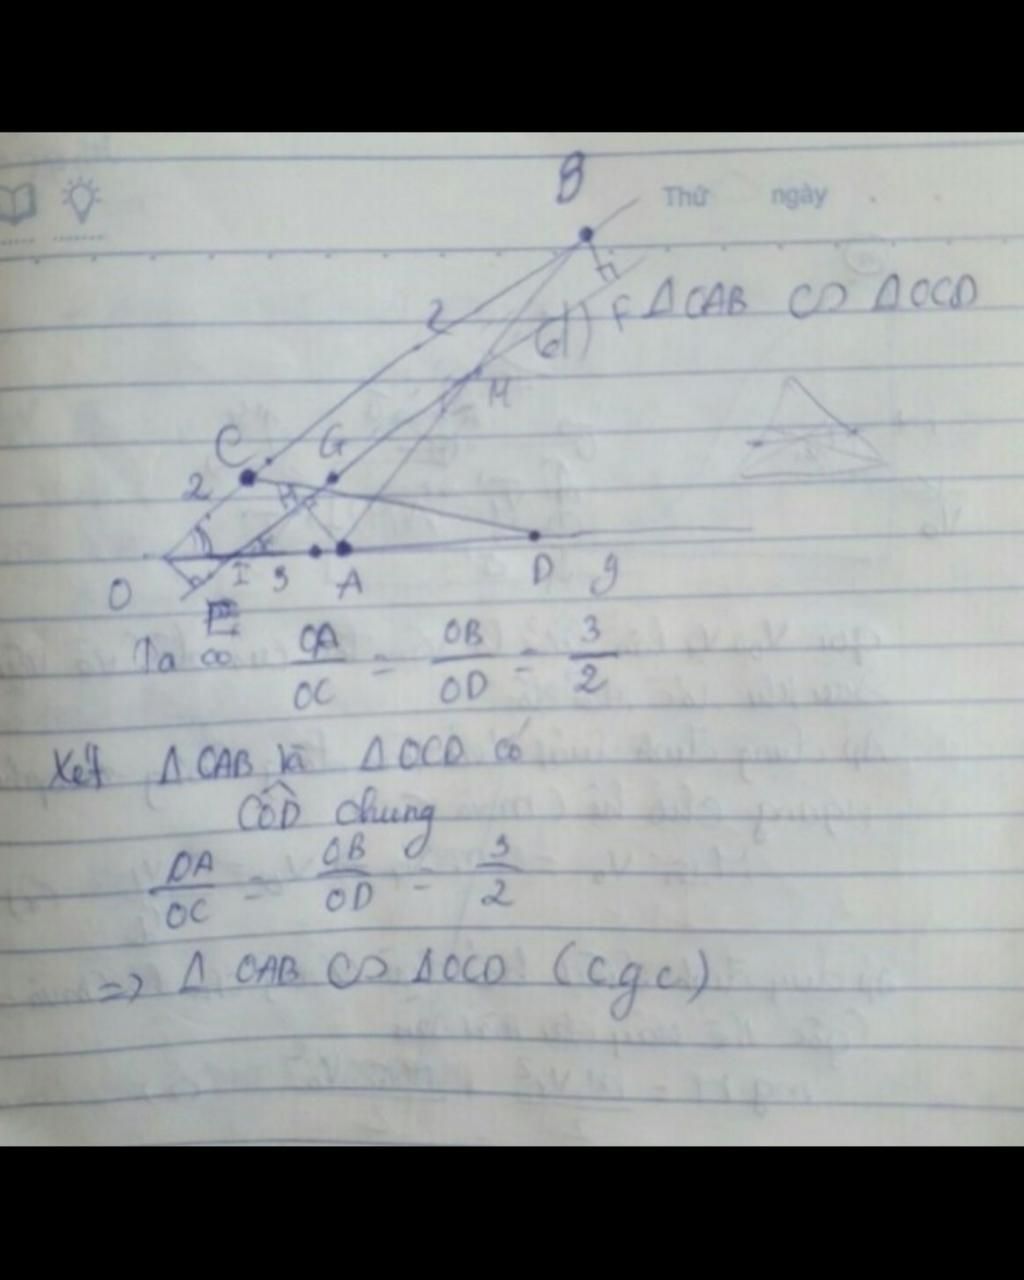 B
Thứ ngày
2
a)
F
Δ OAB ∽ Δ OCD
M
C
G
2
H
O
I
3
A
D
y
E
Ta có OA/OC = OB/OD = 3/2
Xét Δ OAB và Δ OCD có
CÔD chung
OA/OC = OB/OD = 3/2
=> Δ OAB ∽ Δ OCD (c.g.c)